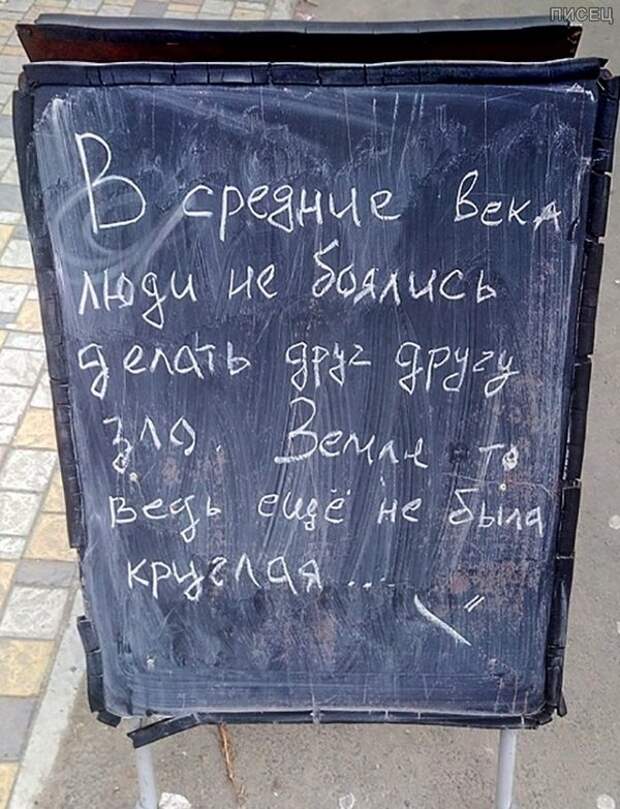 ПИСЕЦ
В средние века
люди не боялись
делать друг другу
зло. Земля то
ведь ещё не была
круглая ...